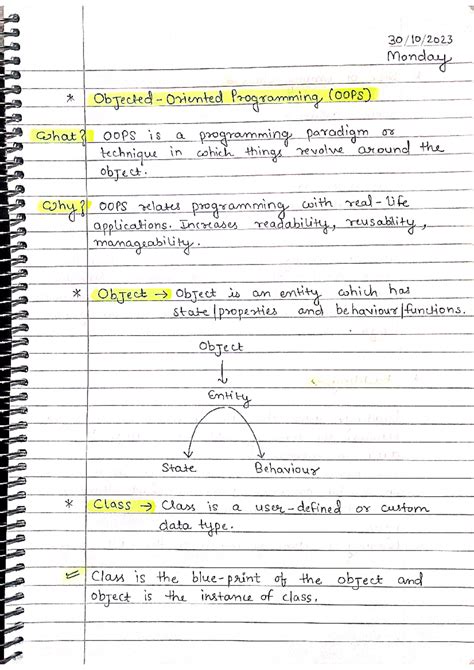 30/10/2023
Monday
* Objected-Oriented Programming (OOPS)
What? OOPS is a programming paradigm or
technique in which things revolve around the
object.
Why? OOPS relates programming with real-life
applications. Increases readability, reusablity,
manageability.
* Object → Object is an entity which has
state/properties and behaviour/functions.
Object
Entity
State Behaviour
* Class → Class is a user-defined or custom
data type.
Class is the blue-print of the object and
object is the instance of class.